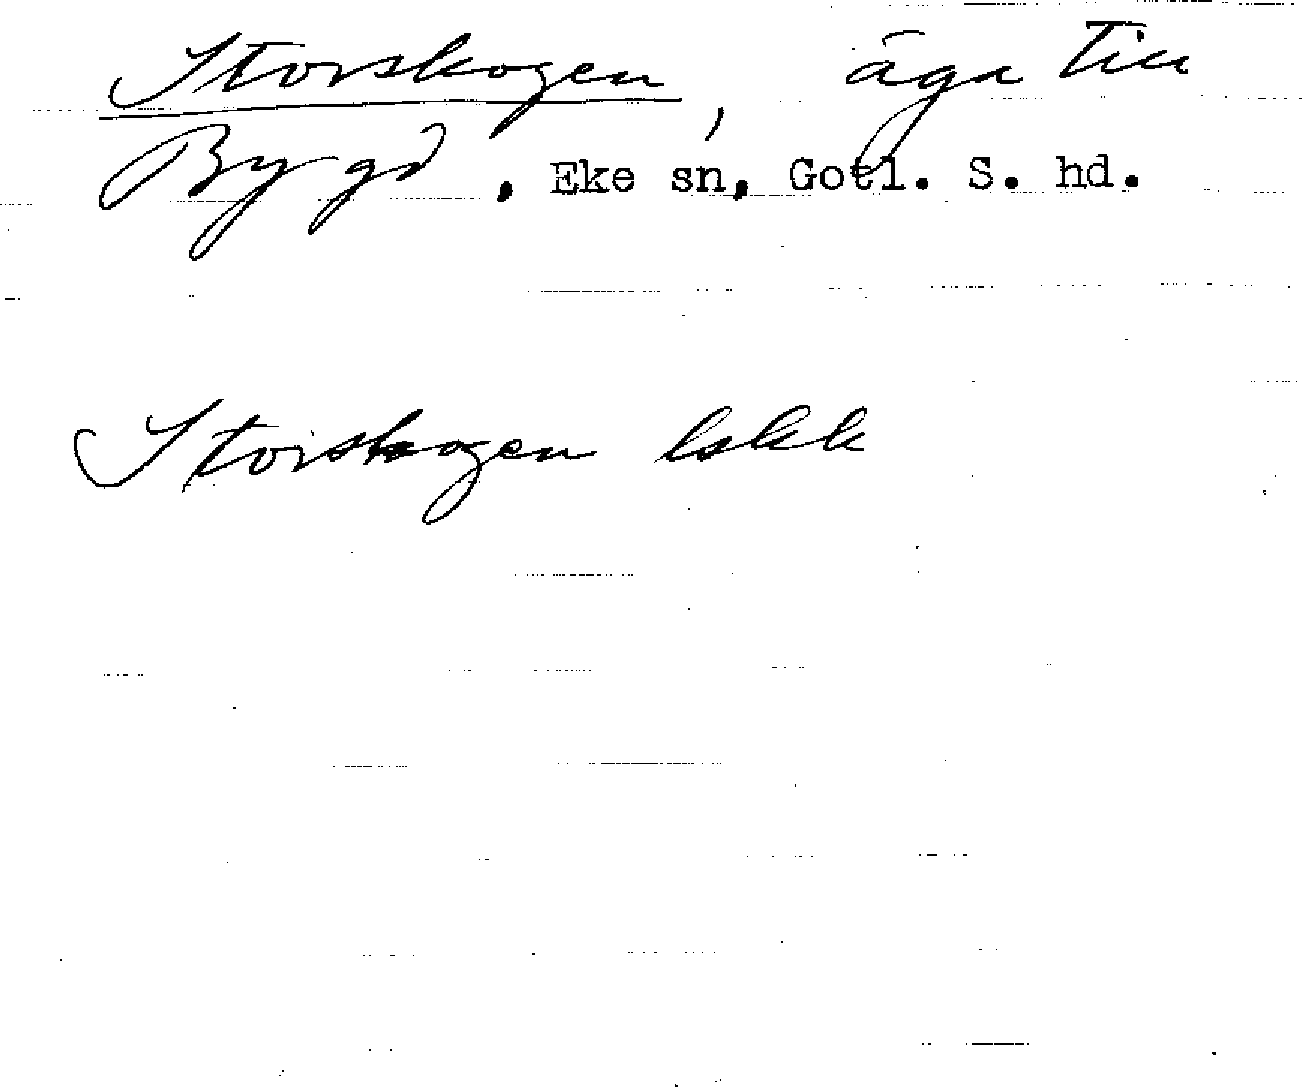 Storskogen, äga till
Bygd, Eke sn, Gotl. S. hd.
Storskogen lskk